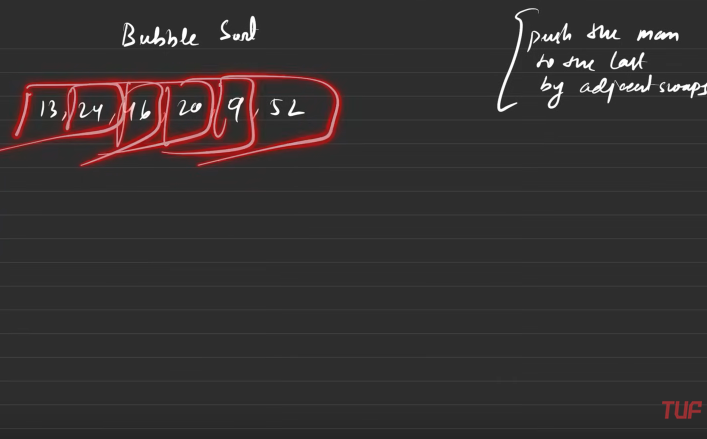 Bubble Sort
push the max
to the last
by adjacent swaps
13, 24, 46, 20, 9, 52
TUF